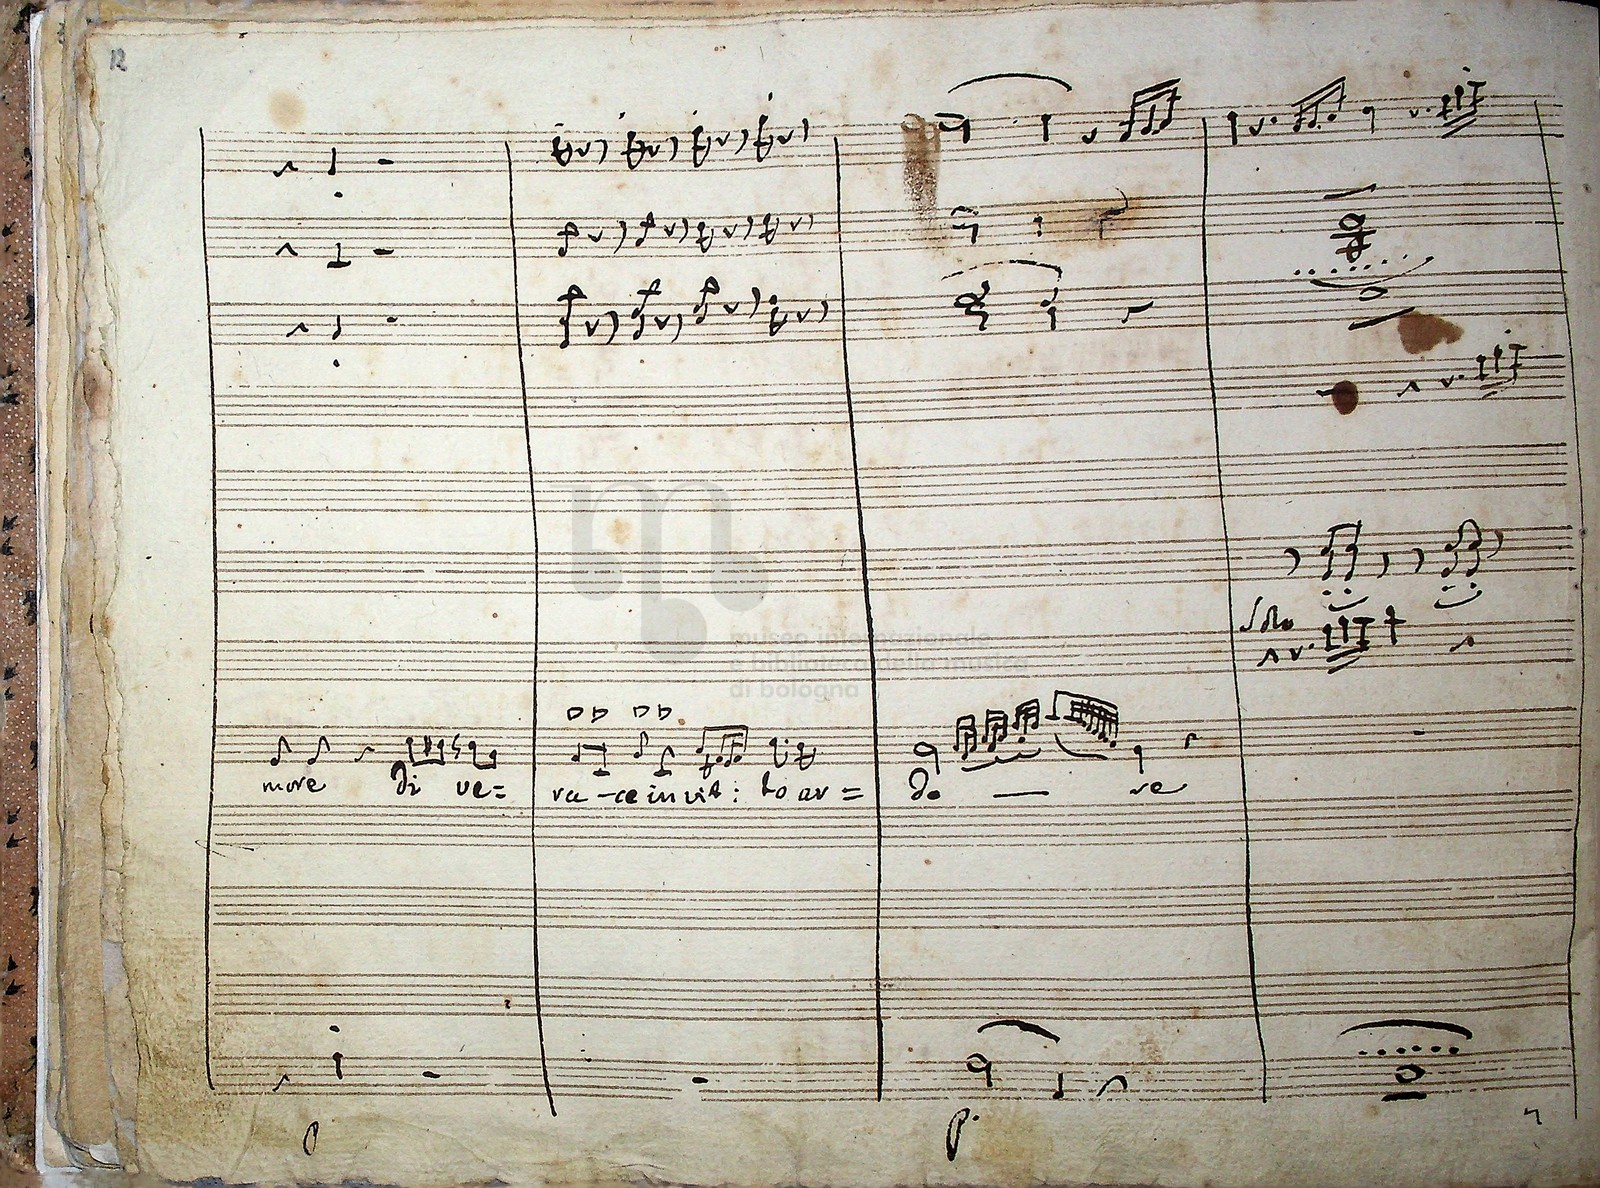 12
Solo
museo internazionale
e biblioteca della musica
di bologna
more di ve=
ra-ce in vit: to av=
do — ve
p p.